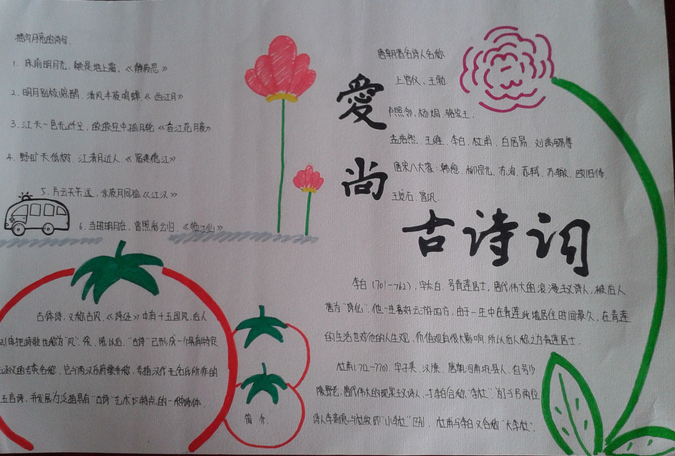 描写月亮的诗句
1. 床前明月光，疑是地上霜。《静夜思》
2. 明月别枝惊鹊，清风半夜鸣蝉《西江月》
3. 江天一色无纤尘，皎皎空中孤月轮《春江花月夜》
4. 野旷天低树，江清月近人。《宿建德江》
5. 片云天共远，永夜月同孤《江汉》
6. 当时明月在，曾照彩云归。《临江仙》
古体诗，又称古风，《诗经》中有十五国风，后人
简介
愛尚
古诗词
唐朝著名诗人名称
上官仪、王勃
卢照邻、杨炯、骆宾王、
孟浩然、王维、李白、杜甫、白居易、刘禹锡等
唐宋八大家：韩愈、柳宗元、苏洵、苏轼、苏辙、欧阳修
王安石、曾巩
李白（701-762），字太白，号青莲居士，唐代伟大的浪漫主义诗人，被后人
誉为"诗仙"，他一生喜好云游四方，由于一生中在青莲此地居住时间最久，在青莲
的生活也对他的人生观，价值观有很大影响，所以后人称之为青莲居士。
杜甫（712-770），字子美，汉族，唐朝河南巩县人，自号少
陵野老，唐代伟大的现实主义诗人，与李白合称"李杜"。为了与两位
诗人李商隐与杜牧即"小李杜"区别，杜甫与李白又合称"大李杜"。